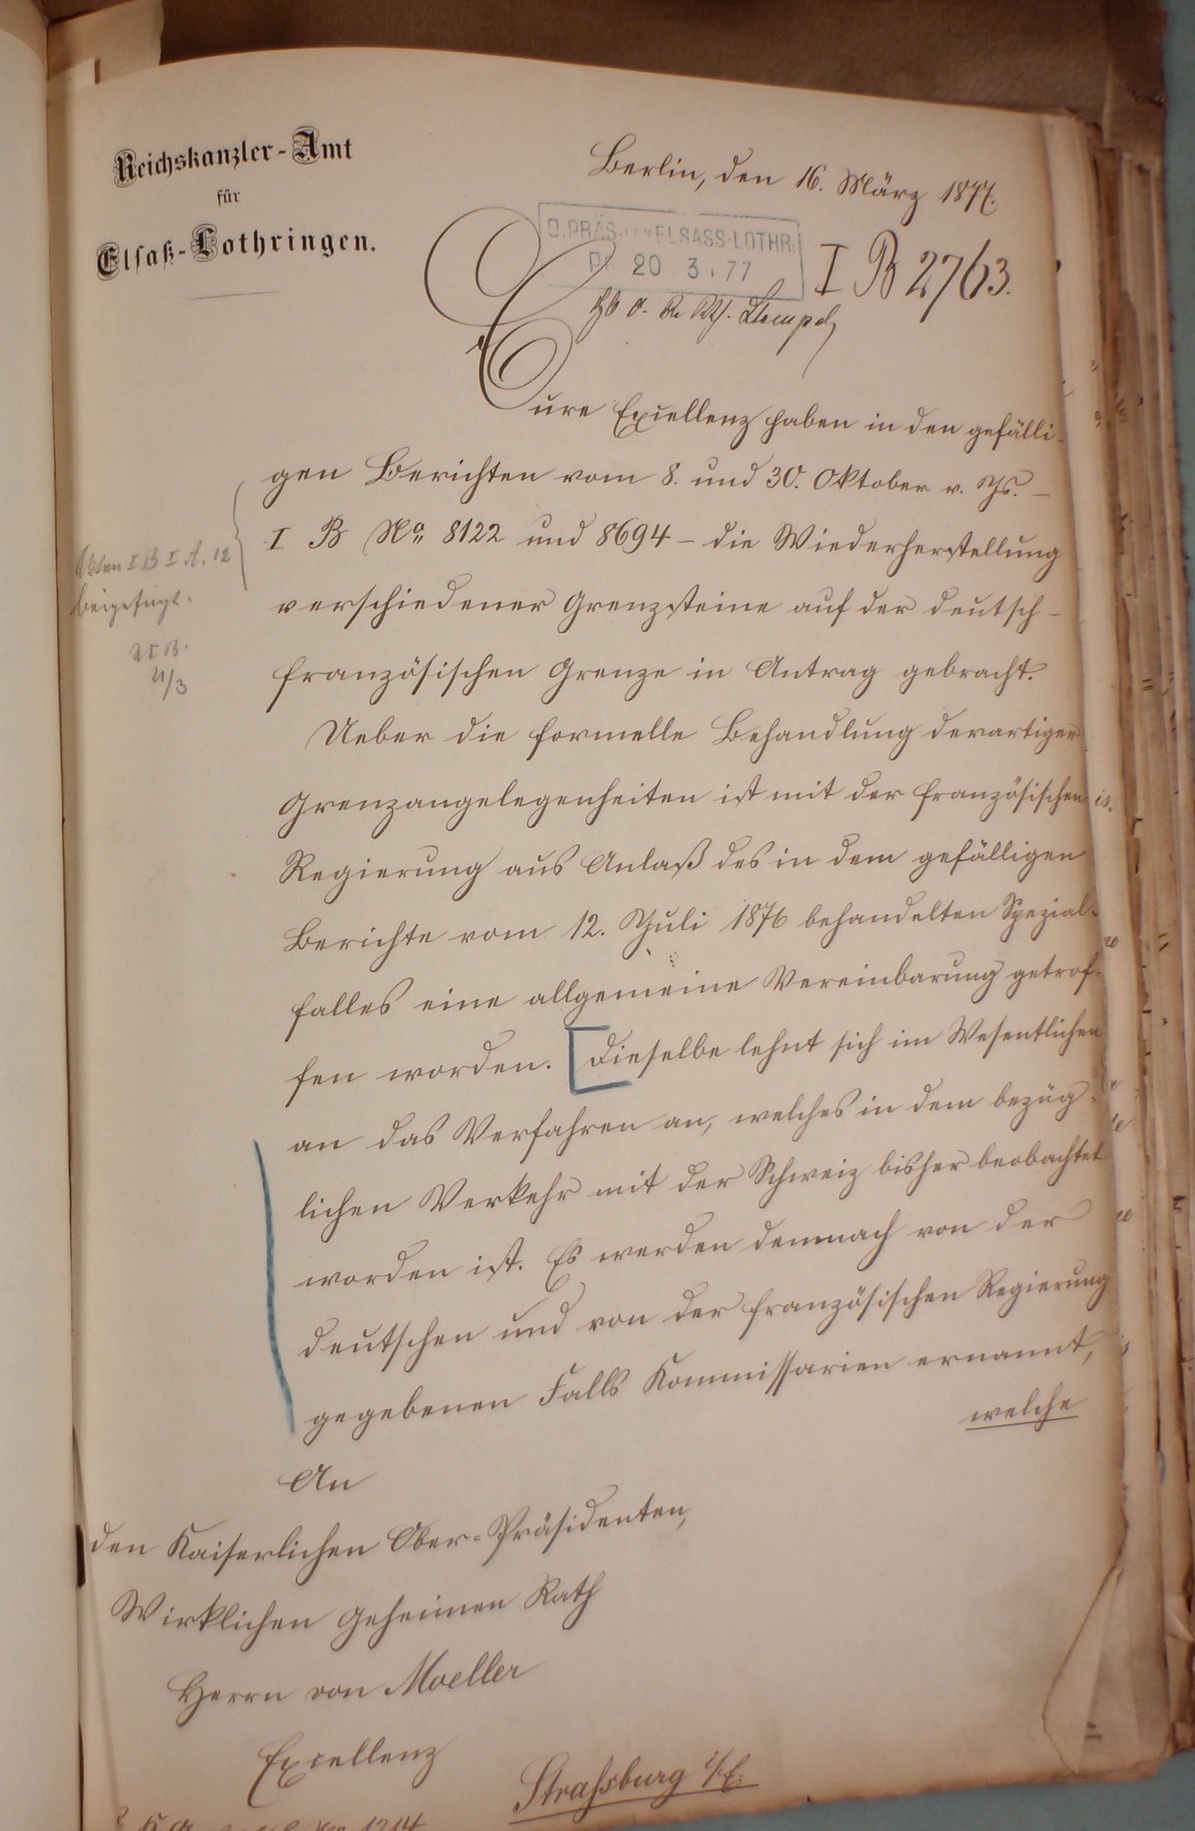 Reichskanzler-Amt
für
Elsaß-Lothringen.
Berlin, den 16. März 1877.
O.PRÄS. ELSASS-LOTHR.
PR 20 3. 77
I B 2763.
Eure Excellenz haben in den gefälli-
gen Berichten vom 8. und 30. Oktober v. Js. –
I B No. 8122 und 8694 – die Wiederherstellung
verschiedener Grenzsteine auf der deutsch-
französischen Grenze in Antrag gebracht.
Ueber die formelle Behandlung derartiger
Grenzangelegenheiten ist mit der französischen
Regierung aus Anlaß des in dem gefälligen
Berichte vom 12. Juli 1876 behandelten Spezial-
falles eine allgemeine Vereinbarung getrof-
fen worden. [Dieselbe lehnt sich im Wesentlichen
an das Verfahren an, welches in dem bezüg-
lichen Verkehr mit der Schweiz bisher beobachtet
worden ist. Es werden demnach von der
deutschen und von der französischen Regierung
gegebenen Falls Kommissarien ernannt,
welche
Akten I B I A. 12
beigefügt.
21/3
An
den Kaiserlichen Ober-Präsidenten,
Wirklichen Geheimen Rath
Herrn von Moeller
Excellenz
Strassburg i/E.
1214